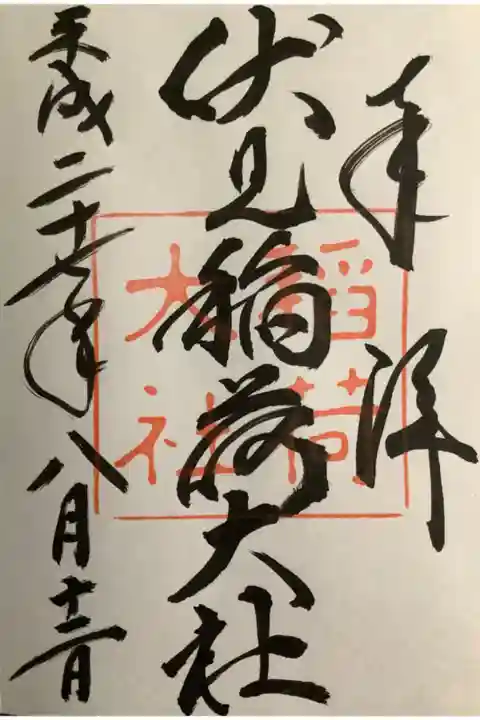 奉拝
伏見稲荷大社
平成二十七年八月十二日
稲荷
大社